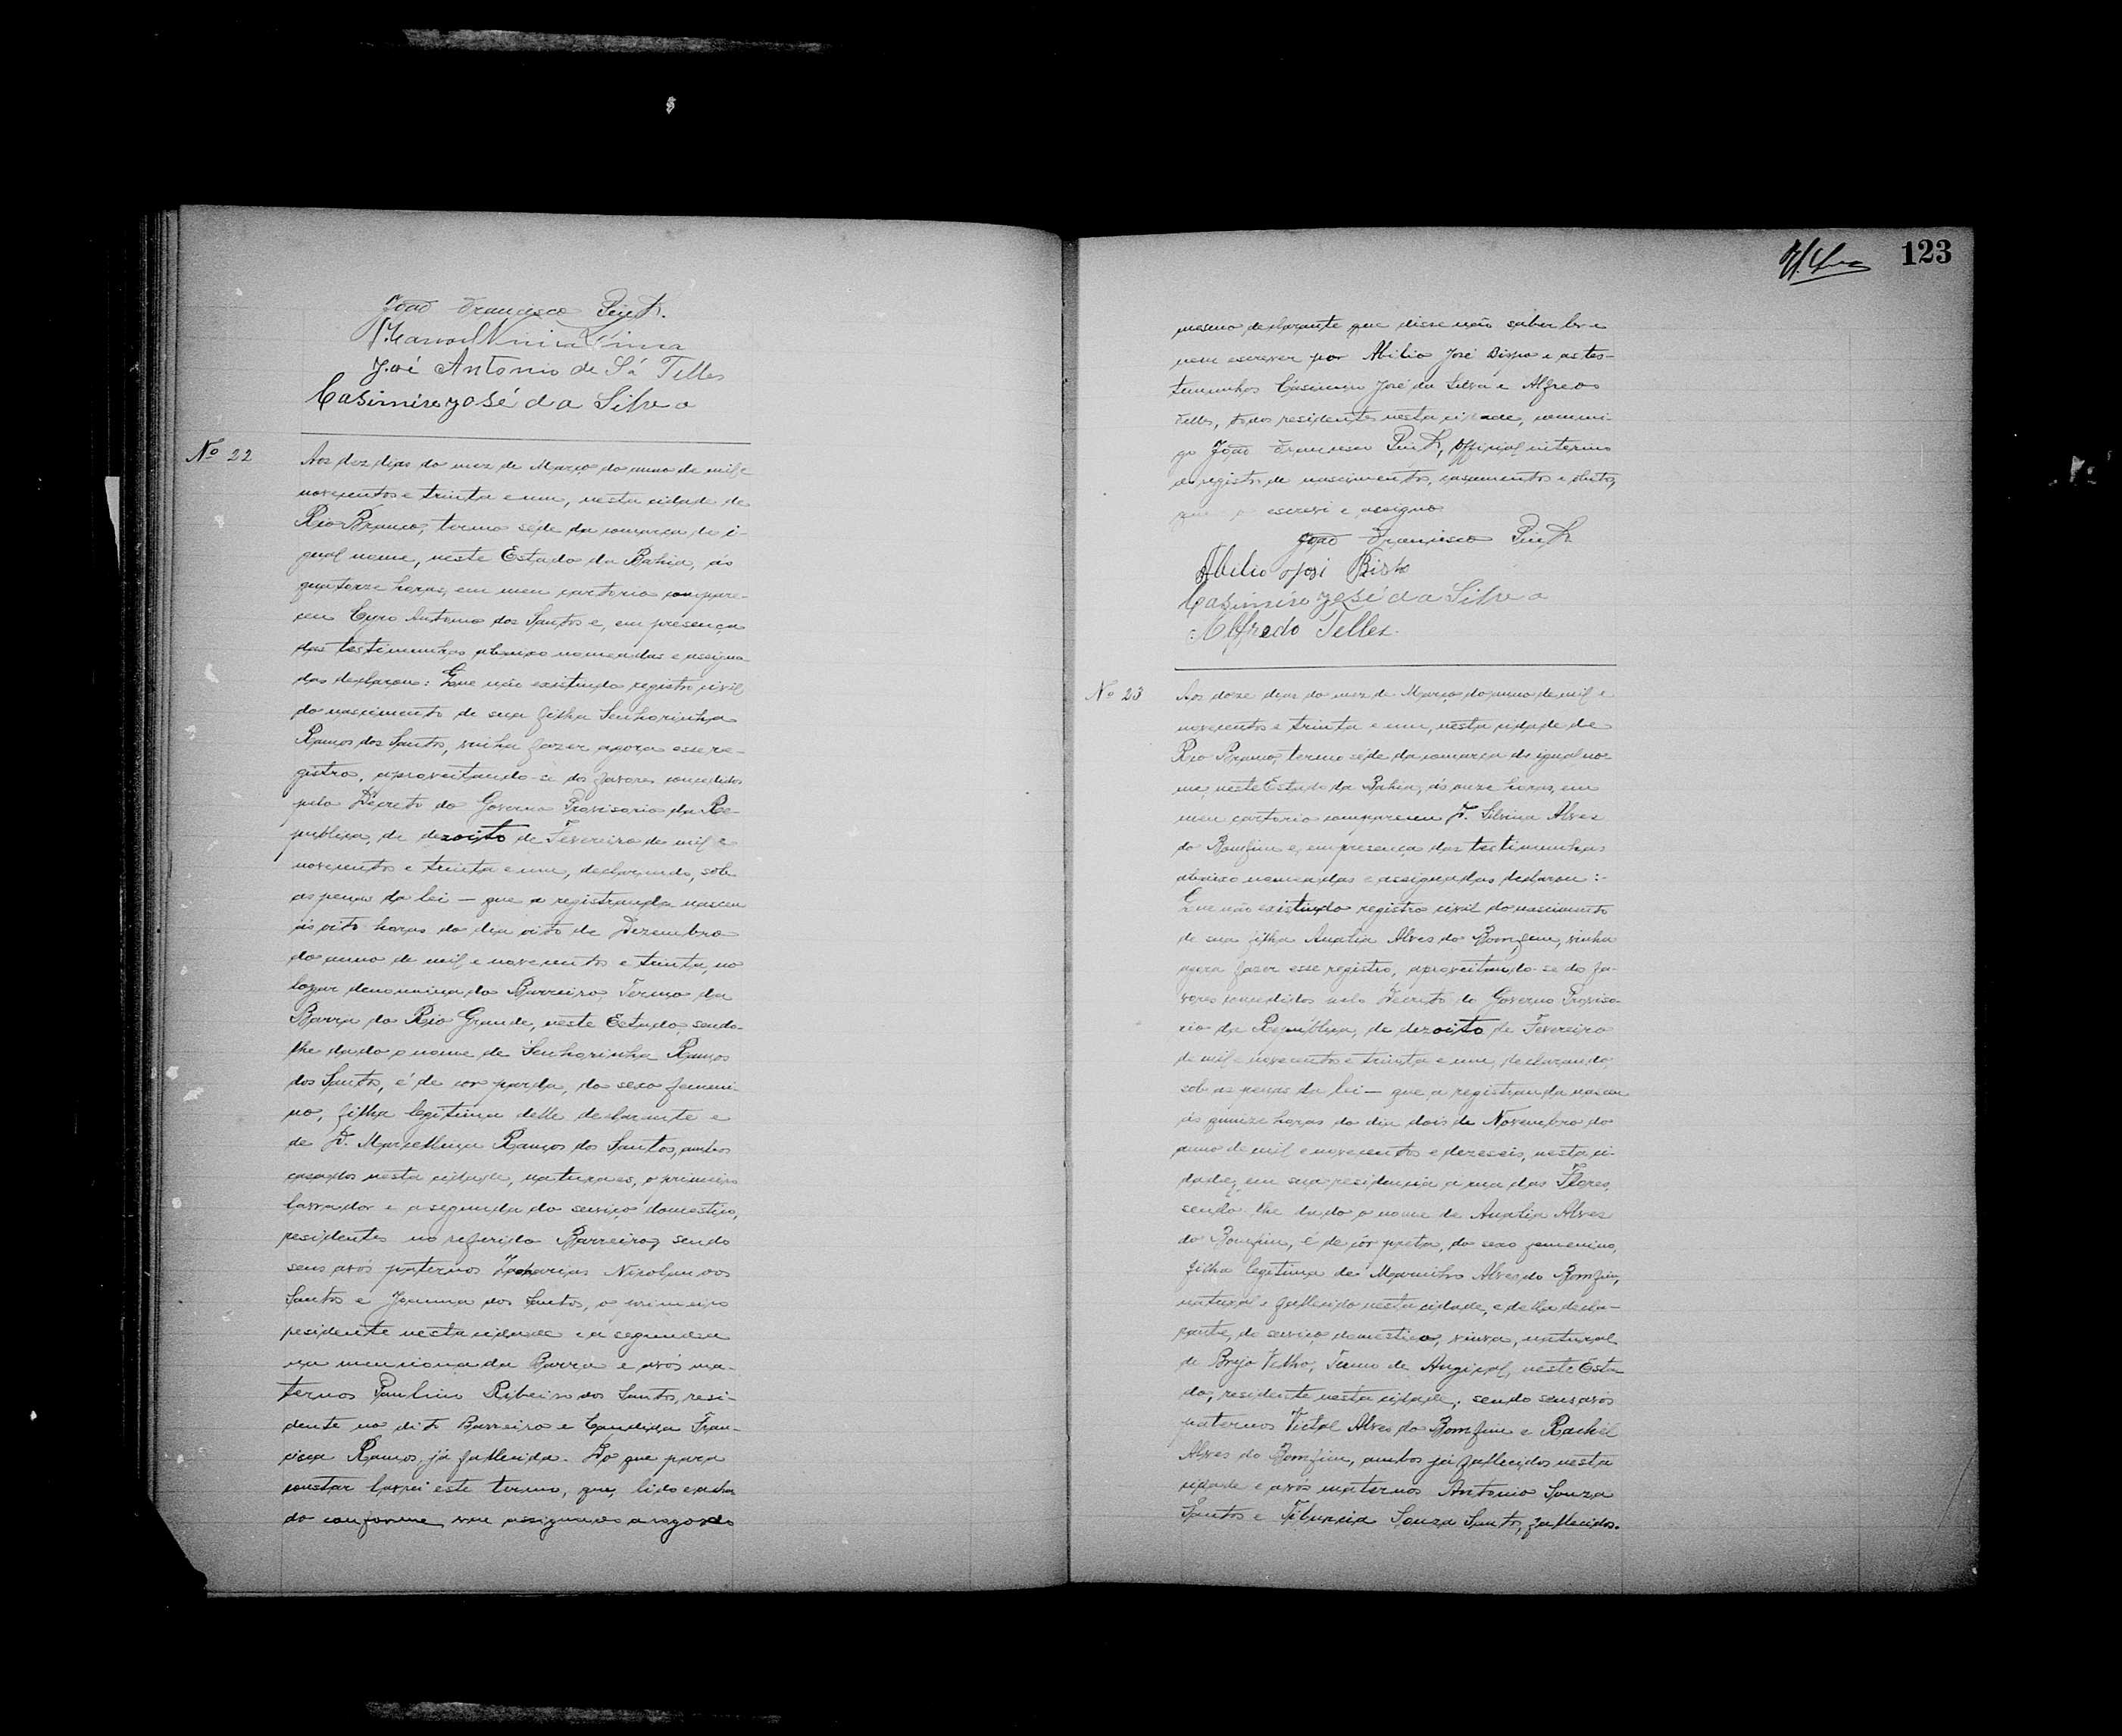 João Francisco
Manoel Lima
José Antonio de Sá Telles
Casimiro José da Silva
Nº 22
Aos dez dias do mez de Março do anno de mil e
novecentos e trinta e um, nesta cidade de
Rio Branco, termo séde da comarca de i-
gual nome, neste Estado da Bahia, ás
quatorze horas, em meu cartorio compare-
ceu Cyro Antonio dos Santos e, em presença
das testimunhas abaixo nomeadas e assigna-
das declarou: Que não existindo registro civil
do nascimento de sua filha Senhorinha
Ramos dos Santos, vinha fazer agora esse re-
gistro, aproveitando-se dos favores concedidos
pelo Decreto do Governo Provisorio da Re-
publica, de dezoito de Fevereiro de mil e
novecentos e trinta e um, declarando, sob
as penas da lei — que a registranda nasceu
ás oito horas do dia oito de Dezembro
do anno de mil e novecentos e trinta, no
logar denominado Barreiro, Termo da
Barra do Rio Grande, neste Estado, sendo-
lhe dado o nome de Senhorinha Ramos
dos Santos, é de cor parda, do sexo femeni-
no, filha legitima delle declarante e
de D. Marcellina Ramos dos Santos, ambos
casados nesta cidade, naturaes, o primeiro
lavrador e a segunda do serviço domestico,
residentes no referido Barreiro, sendo
seus avós paternos Zacharias Nicolau dos
Santos e Joanna dos Santos, o primeiro
residente nesta cidade e a segunda
na mencionada Barra e avós ma-
ternos Paulino Ribeiro dos Santos, resi-
dente no dito Barreiro e Candida Fran-
cisca Ramos, já fallecida. Do que para
constar lavrei este termo, que, lido e acha-
do conforme, vae assignado a rogo do
123
mesmo declarante que disse não saber ler e
nem escrever por Abilio José Bispo e as tes-
timunhas Casimiro José da Silva e Alfredo
Telles, todos residentes nesta cidade, commi-
go João Francisco official interino
do registro de nascimentos, casamentos e obitos,
que o escrevi e assigno
João Francisco
Abilio José Bispo
Casimiro José da Silva
Alfredo Telles.
Nº 23
Aos doze dias do mez de Março do anno de mil e
novecentos e trinta e um, nesta cidade de
Rio Branco, termo séde da comarca de igual no-
me, neste Estado da Bahia, ás onze horas, em
meu cartorio compareceu D. Silvina Alves
do Bomfim e, em presença das testimunhas
abaixo nomeadas e assignadas declarou:-
Que não existindo registro civil do nascimento
de sua filha Analia Alves do Bomfim, vinha
agora fazer esse registro, aproveitando-se do fa-
vores concedidos pelo Decreto do Governo Proviso-
rio da Republica, de dezoito de Fevereiro
de mil e novecentos e trinta e um, declarando,
sob as penas da lei — que a registranda nasceu
ás quinze horas do dia dois de Novembro do
anno de mil e novecentos e dezeseis, nesta ci-
dade, em sua residencia a rua das Flores,
sendo-lhe dado o nome de Analia Alves
do Bomfim, é de côr preta, do sexo femenino,
filha legitima de Alves do Bomfim,
natural e fallecido nesta cidade, e della decla-
rante, de serviço domestico, viuva, natural
de Brejo Velho, Termo de Angical, neste Esta-
do, residente nesta cidade, sendo seus avós
paternos Victal Alves do Bomfim e Rachel
Alves do Bomfim, ambos já fallecidos nesta
cidade e avós maternos Antonio Souza
Santos e Tiburcia Souza Santos, fallecidos.